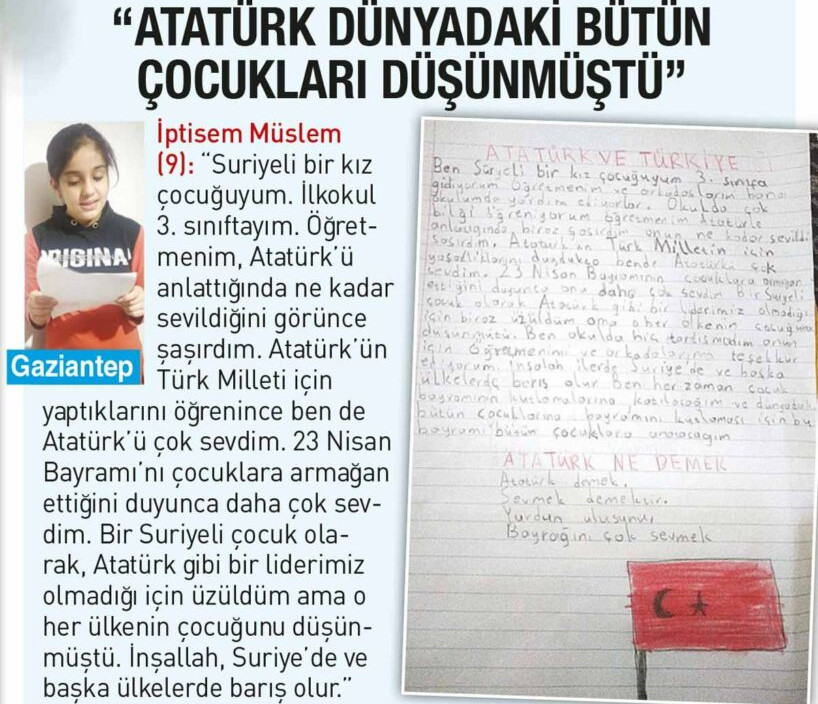 “ATATÜRK DÜNYADAKİ BÜTÜN
ÇOCUKLARI DÜŞÜNMÜŞTÜ”
İptisem Müslem
(9): “Suriyeli bir kız
çocuğuyum. İlkokul
3. sınıftayım. Öğret-
menim, Atatürk’ü
anlattığında ne kadar
sevildiğini görünce
şaşırdım. Atatürk’ün
Türk Milleti için
yaptıklarını öğrenince ben de
Atatürk’ü çok sevdim. 23 Nisan
Bayramı’nı çocuklara armağan
ettiğini duyunca daha çok sev-
dim. Bir Suriyeli çocuk ola-
rak, Atatürk gibi bir liderimiz
olmadığı için üzüldüm ama o
her ülkenin çocuğunu düşün-
müştü. İnşallah, Suriye’de ve
başka ülkelerde barış olur.”
ORIGINAL
Gaziantep
ATATÜRK VE TÜRKİYE
Ben Süryeli bir kız çocuğuyum 3. sınıfa
gidiyorum Öğretmenim ve arkadaşlarım bana
okulumda yardım ediyorlar. Okulda çok
bilgi öğreniyorum öğretmenim Atatürk
anlattığında biraz şaşırdım onun ne kadar sevildi
şaşırdım. Atatürk'ün Türk Milletin için
bende Atatürkü çok
sevdim. 23 Nisan Bayramının çocuklara armağan
ettiğini duyunca onu daha çok sevdim Bir Suriyeli
çocuk olarak Atatürk gibi bir liderimiz olmadığı
için biraz üzüldüm ama o her ülkenin çocuğunu
düşünmüştü. Ben okulda hiç onun
için Öğretmenime ve arkadaşlarıma teşekkür
ediyorum. İnşalah ilerde Suriye'de ve başka
ülkelerde barış olur Ben her zaman çocuk
bayramının kutlamalarına katılacağım ve dünyadaki
bütün çocukların bayramını kutlaması için bu
bayramı bütün çocuklara
ATATÜRK NE DEMEK
Atatürk demek.
Sevmek demektir.
Yurdun ulusunu,
Bayrağını çok sevmek